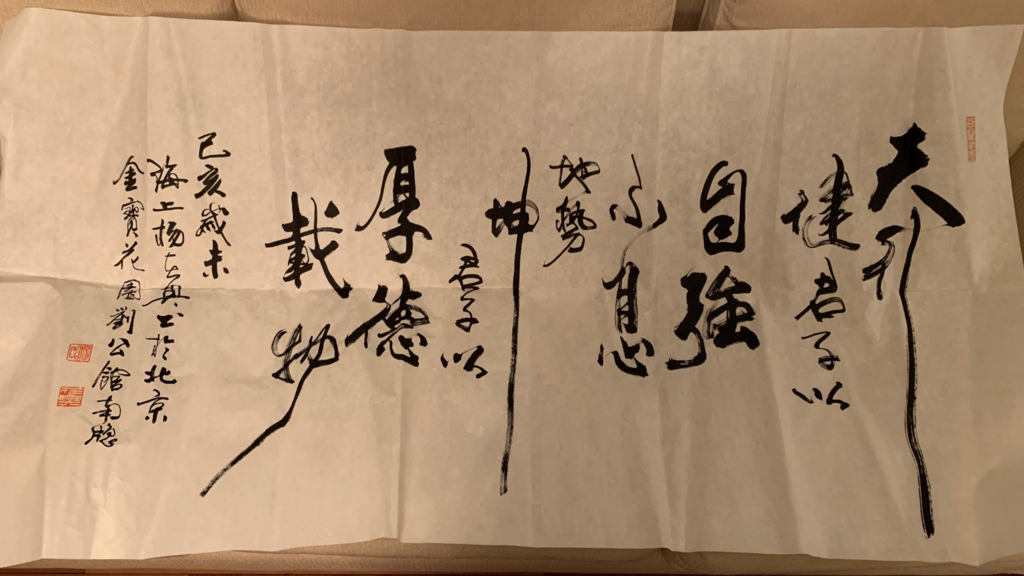 天行
健君子以
自強
不息
地勢
坤
君子以
厚德
載物
己亥歲末
海上揚
書於北京
金寶花園劉公館南窓